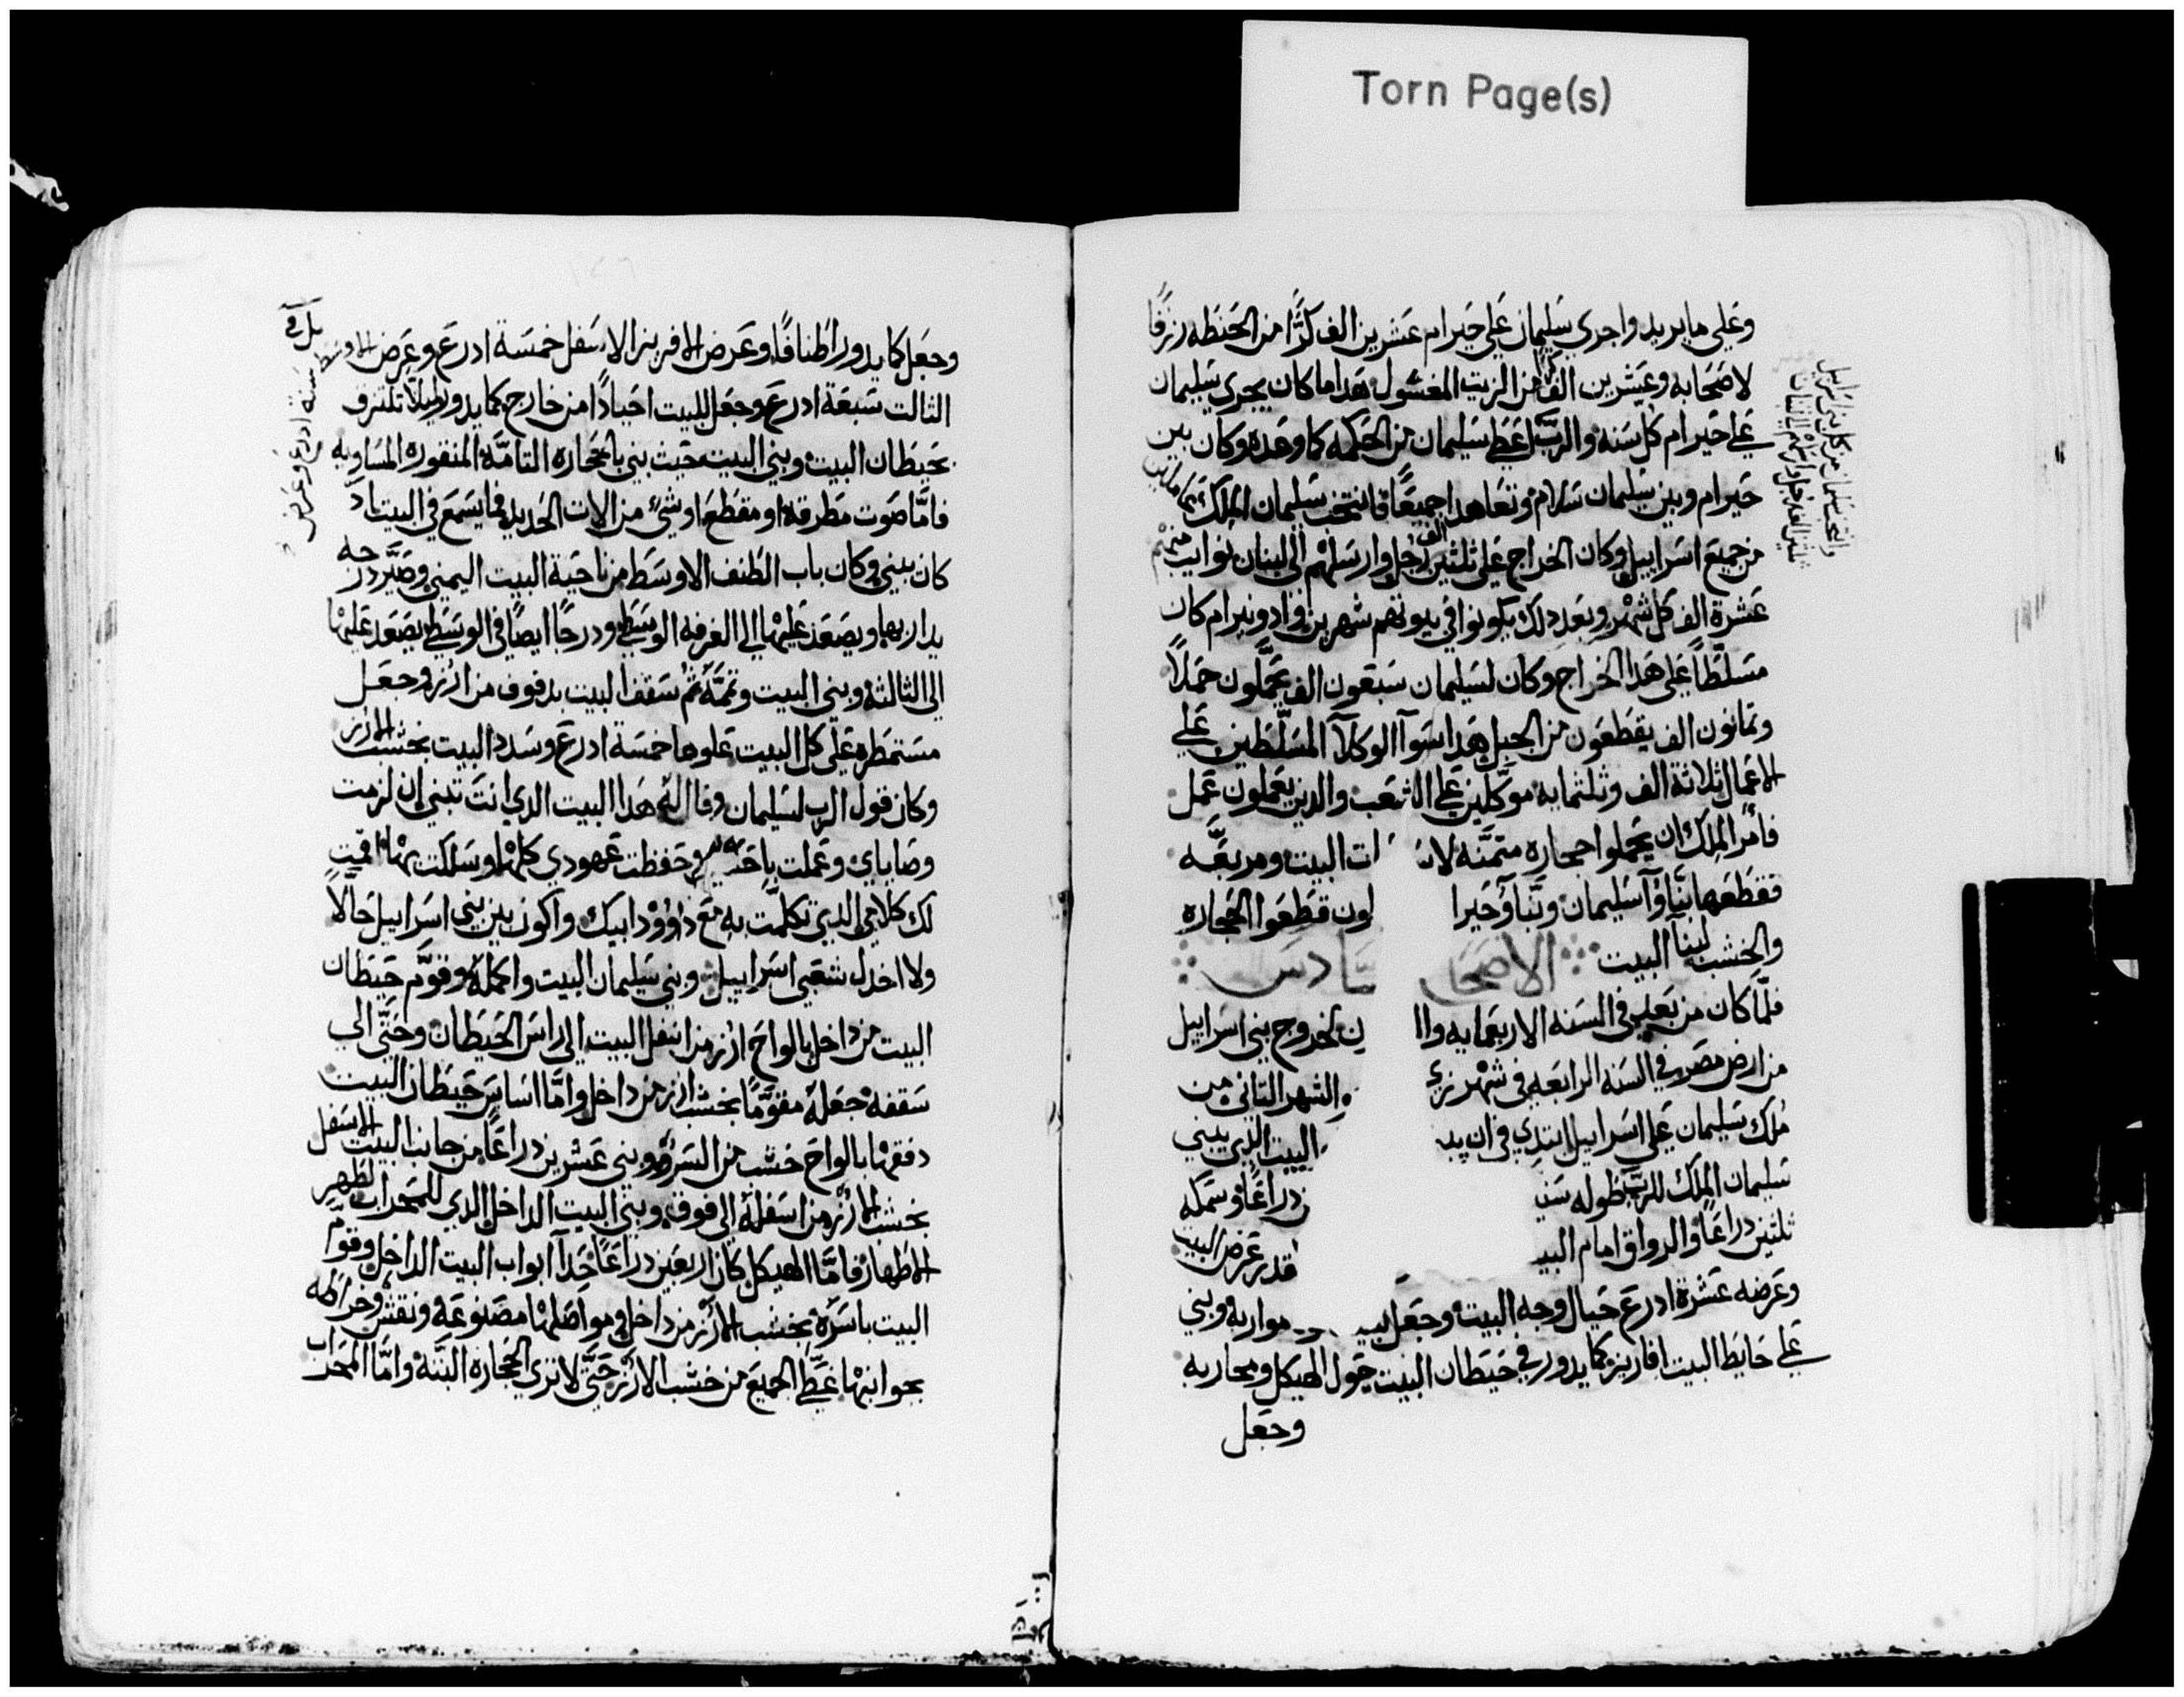 Torn Page(s)
وعلي ما يريد واجري سليمان علي حيرام عشرين الف كرًّا من الحنطه رزقًا
لاصحابه وعشرين الف كر من الزيت المغسول هدا ما كان يجري سليمان
علي حيرام كل سنه والرب اعطي سليمان من الحكمه كما وعده وكان بين
حيرام وبين سليمان سلام وتعاهدا جميعًا فانتخب سليمان الملك
من جميع اسراييل وكان الخراج علي ثلثين الف رجل وارسلهم الي لبنان نوايب منهم
عشرة الف كل شهر وبعد دلك يكونوا في بيوتهم شهرين وادونيرام كان
مسلطًا علي هدا الخراج وكان لسليمان سبعون الف يحملون حملاً
وثمانون الف يقطعون من الجبل هدا سوا الوكلآ المسلطين علي
الاعمال ثلاثة الف وثلثمايه موكلين علي الشعب والدين يعملون عمل
فامر الملك ان يحملوا حجاره متمنه لاسا ات البيت ومربعه
فقطعها بنآؤا سليمان وبنآؤ حيرا لون قطعوا الحجاره
والخشب لبنا البيت الاصحا سادس
فلما كان من بعد في السنه الاربعمايه واا ين لخروج بني اسراييل
من ارض مصر في السنه الرابعه في شهر الشهر الثاني من
ملك سليمان علي اسراييل ابتدي في ان البيت الدي يبني
سليمان الملك للرب طوله ستي ن دراعًا وسمكه
ثلثين دراعًا والرواق امام البيـ قدر عرض البيت
وعرضه عشرة ادرع حيال وجه البيت وجعل مواربه وبني
علي حايط البيت افاريز كما يدور في حيطان البيت حول الهيكل ومحاربه
وجعل
وجعل كما يدور اطنافًا وعرض الافريز الاسفل خمسة ادرع وعرض الاوسط ستة ادرع وعرض
الثالت سبعة ادرع وجعل للبيت اخيادًا من خارج كما يدور ليلا تلتزق
بحيطان البيت وبني البيت حيث بني بالحجاره التامه المنقوره المساويه
فاما صوت مطرقه او مقطع او شيء من الات الحديد فما يسمع في البيت اد
كان بيني وكان باب الطنف الاوسط من ناحية البيت اليمني وصير درجه
يدار بها ويصعد عليها الي الغرفه الوسطي ودرجًا ايضًا في الوسطي يصعد عليها
الي الثالثه وبني البيت وتممه ثم سقف البيت بدفوف من ارز وجعل
مستمطره علي كل البيت علوها خمسة ادرع وسدد البيت بخشب الارز
وكان قول الرب لسليمان وقال له هدا البيت الدي انت تبني ان لزمت
وصاياي وعملت وحفظت عهودي كلها وسلكت بها اقمت
لك كلامي الدي تكلمت به مع داوؤد ابيك واكون بين بني اسراييل حالاً
ولا اخدل شعبي اسراييل وبني سليمان البيت واكمله وقوم حيطان
البيت من داخل بالواح ارز من اسفل البيت الي راس الحيطان وحتي الي
سقفه جعله مقومًا بخشب ارز من داخل واما اساس حيطان البيت
دفقها بالواح خشب من السرو وبني عشرين دراعًا من جانب البيت الاسفل
بخشب الارز من اسفله الي فوق وبني البيت الداخل الدي للمحراب لطهر
الاطهار فاما الهيكل كان اربعين دراعًا حدآ ابواب البيت الداخل وقوم
البيت باسره بخشب الارز من داخل في مواصلها مصنوعه ونقش وخراطه
بجوانبها غطي الجميع من خشب الارز حتي لا تري الحجاره البته واما المحراب